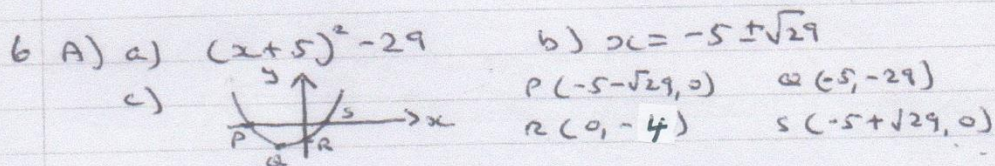 6 A) a) (x+5)² -29 b) x = -5 ±√29
c) y x P Q R S P (-5-√29, 0) Q (-5, -29)
R (0, -4) S (-5+√29, 0)